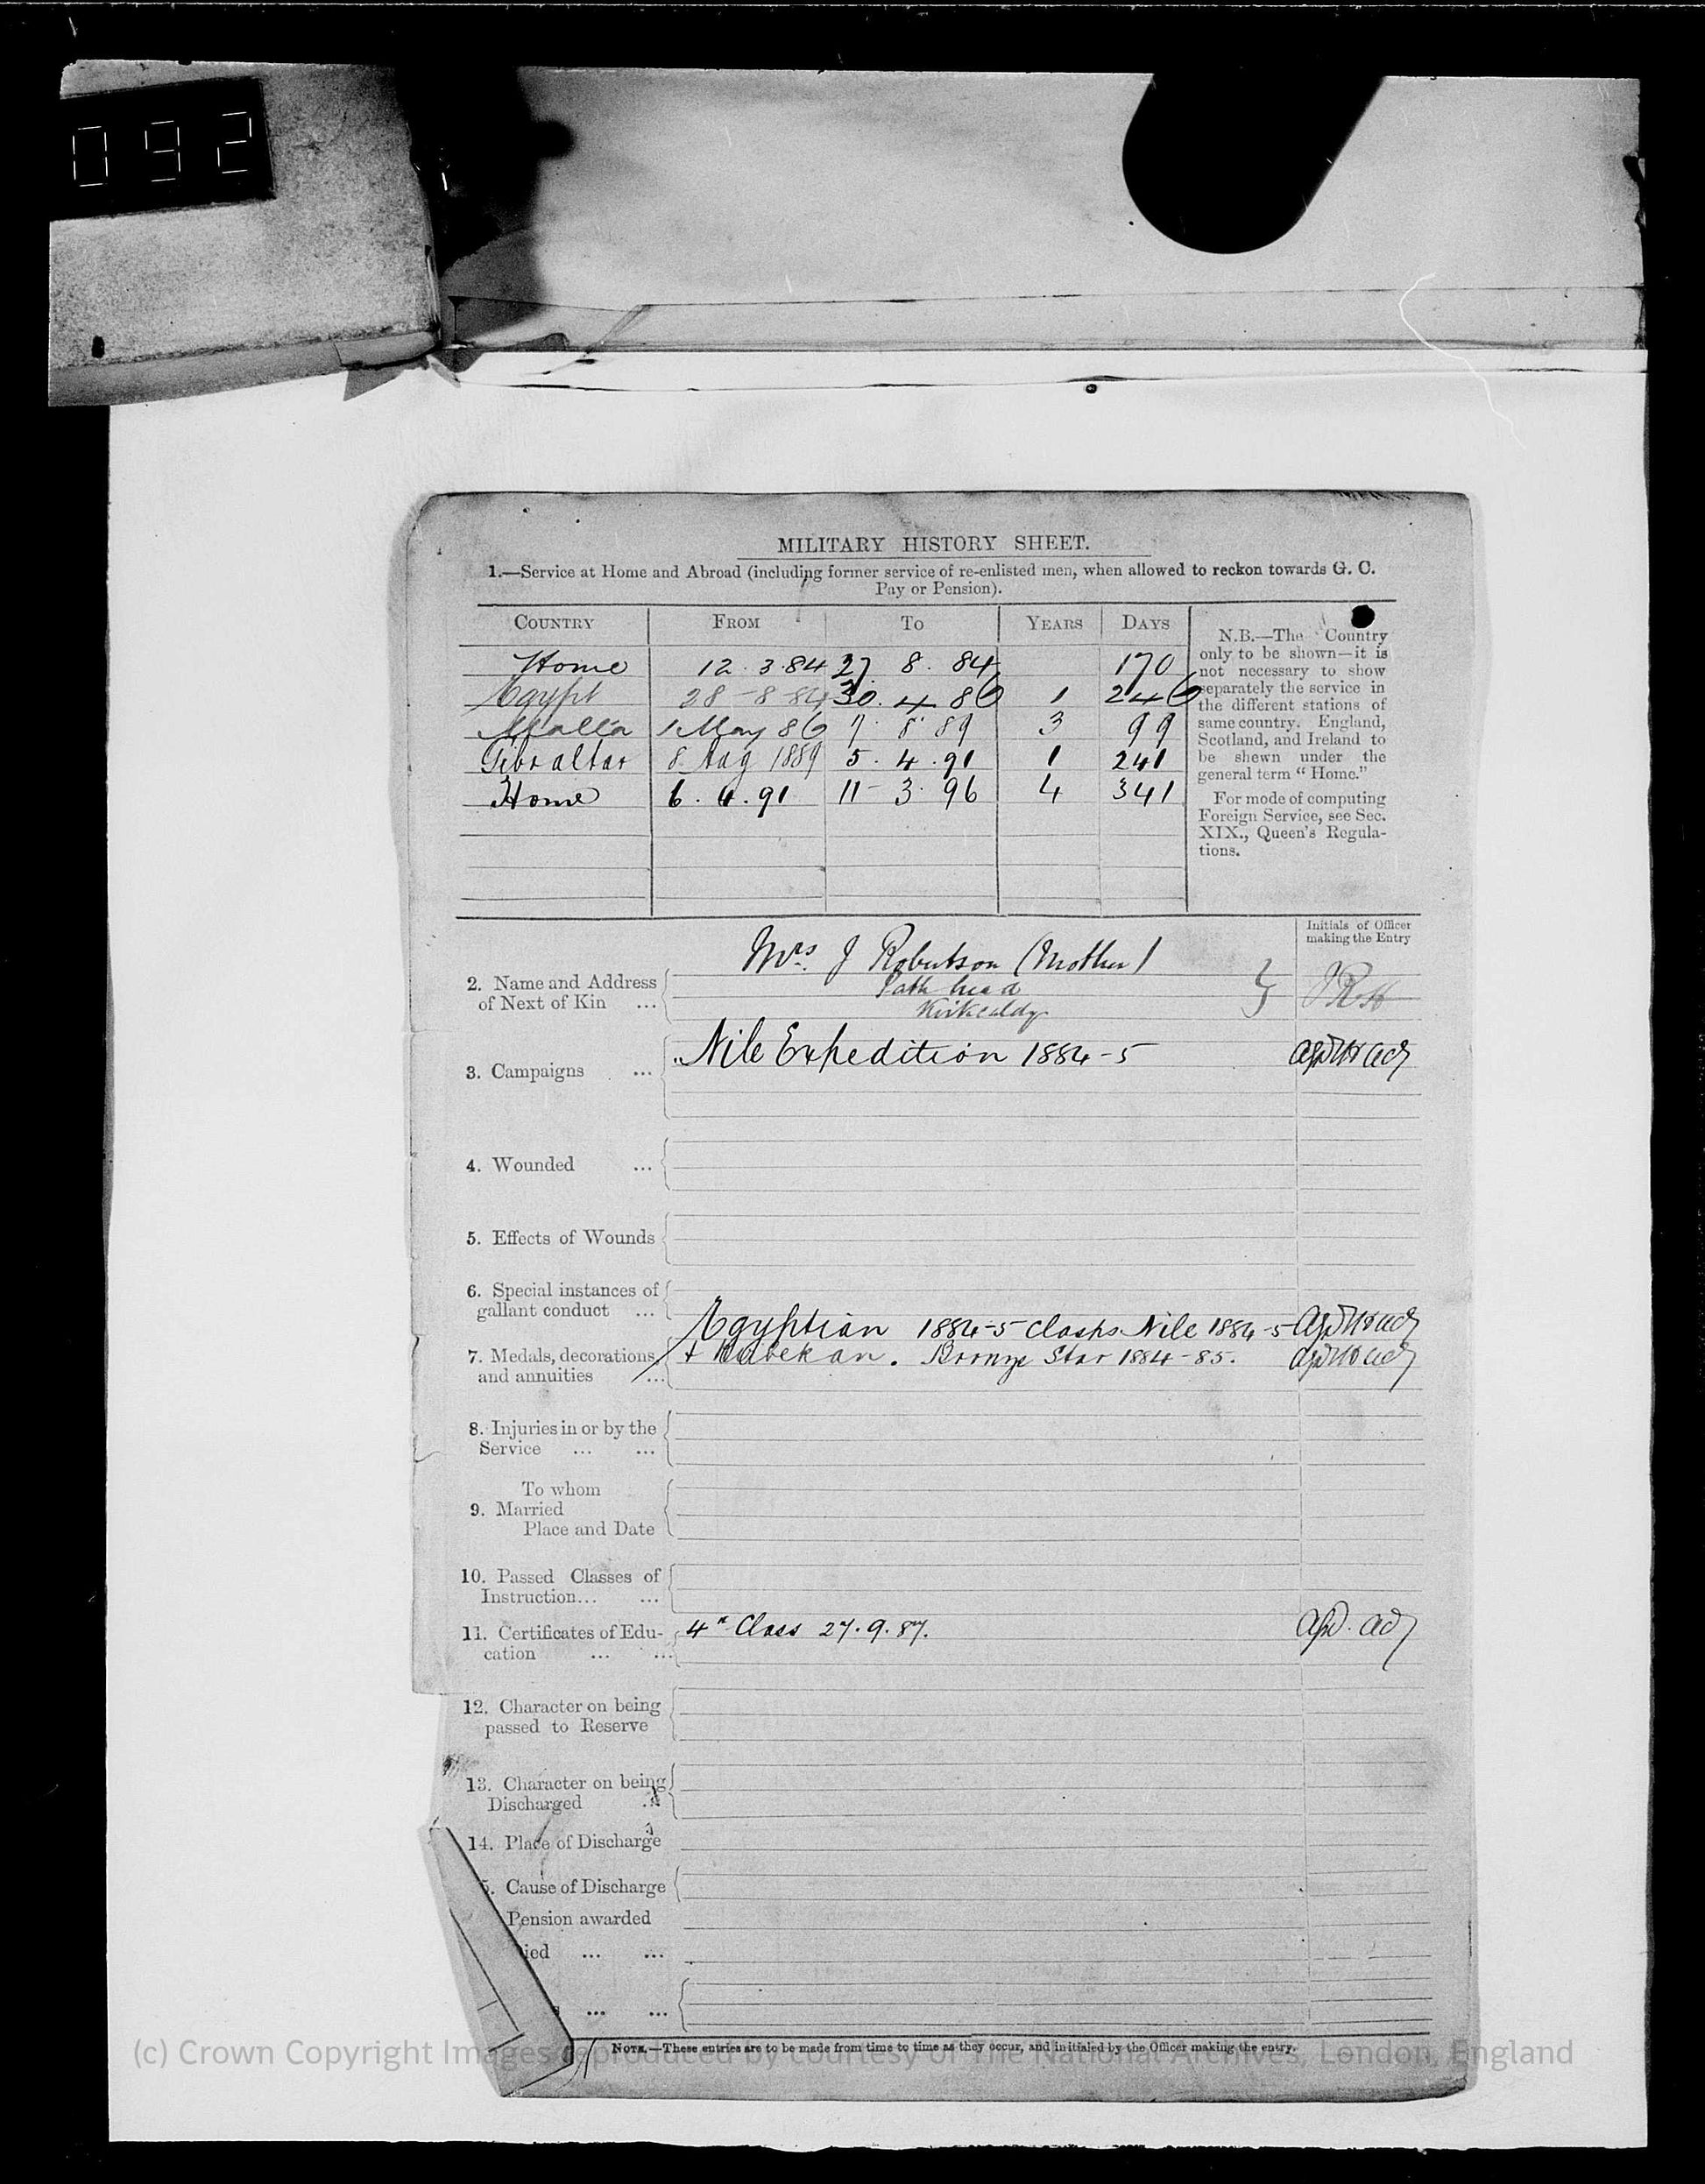 092
MILITARY HISTORY SHEET.
1.—Service at Home and Abroad (including former service of re-enlisted men, when allowed to reckon towards G. C.
Pay or Pension).
COUNTRY FROM TO YEARS DAYS
Home 12.3.84 27. 8. 84 170
Egypt 28-8-84 30. 4. 86 1 246
Malta 1 May 86 7. 8. 89 3 99
Gibraltar 8 Aug 1889 5. 4. 91 1 241
Home 6. 4. 91 11-3. 96 4 341
N.B.—The Country
only to be shown—it is
not necessary to show
separately the service in
the different stations of
same country. England,
Scotland, and Ireland to
be shewn under the
general term "Home."
For mode of computing
Foreign Service, see Sec.
XIX., Queen's Regula-
tions.
Initials of Officer
making the Entry
2. Name and Address
of Next of Kin ...
Mrs. J Robertson (Mother)
Path head
Kirkcaldy
3. Campaigns ...
Nile Expedition 1884-5
4. Wounded ...
5. Effects of Wounds
6. Special instances of
gallant conduct ...
7. Medals, decorations,
and annuities ...
Egyptian 1884-5 Clasps. Nile 1884-5
+ Kirbekan. Bronze Star 1884-85.
8. Injuries in or by the
Service ... ...
To whom
9. Married
Place and Date
10. Passed Classes of
Instruction... ...
11. Certificates of Edu-
cation ... ...
4th Class 27.9.87.
12. Character on being
passed to Reserve
13. Character on being
Discharged
14. Place of Discharge
5. Cause of Discharge
Pension awarded
ied ... ...
... ...
NOTE.—These entries are to be made from time to time as they occur, and initialed by the Officer making the entry.
(c) Crown Copyright Images reproduced by courtesy of The National Archives, London, England